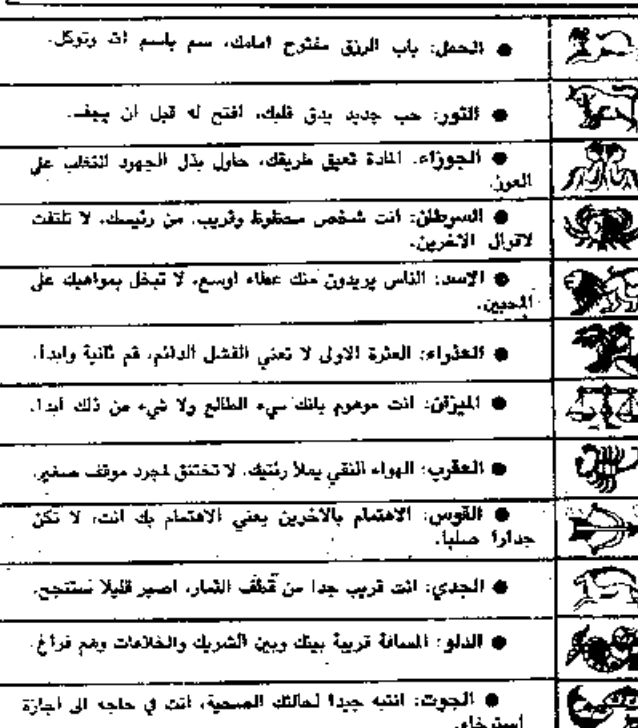 ● الحمل: باب الرزق مفتوح امامك، سم باسم الله وتوكل.
● الثور: حب جديد يدق قلبك، افتح له قبل ان يجف.
● الجوزاء: المادة تعيق طريقك، حاول بذل الجهود للتغلب على
العوز.
● السرطان: انت شخص محظوظ وقريب، من رئيسك، لا تلتفت
لاقوال الاخرين.
● الاسد: الناس يريدون منك عطاء اوسع، لا تبخل بمواهبك على
المحبين.
● العذراء: العثرة الاولى لا تعني الفشل الدائم، قم ثانية وابدأ.
● الميزان: انت موهوم بانك سيء الطالع ولا شيء من ذلك أبدا.
● العقرب: الهواء النقي يملأ رئتيك، لا تختنق لمجرد موقف صغير.
● القوس: الاهتمام بالاخرين يعني الاهتمام بك انت، لا تكن
جدارا صلبا.
● الجدي: انت قريب جدا من قطف الثمار، اصبر قليلا ستنجح.
● الدلو: المسافة قريبة بينك وبين الشريك والخلافات وهم فراغ.
● الحوت: انتبه جيدا لحالتك الصحية، انت في حاجه الى اجازة
استرخاء.